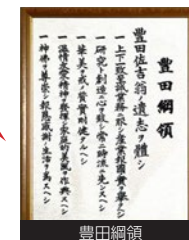 豐田綱領
豐田佐吉翁ノ遺志ヲ體シ
一 上下一致至誠業務ニ服シ產業報國ノ實ヲ擧クヘシ
一 研究ト創造ニ心ヲ致シ常ニ時流ニ先ンスヘシ
一 華美ヲ戒メ質實剛健タルヘシ
一 溫情友愛ノ精神ヲ發揮シ家庭的美風ヲ作興スヘシ
一 神佛ヲ尊崇シ報恩感謝ノ生活ヲ爲スヘシ
豊田綱領